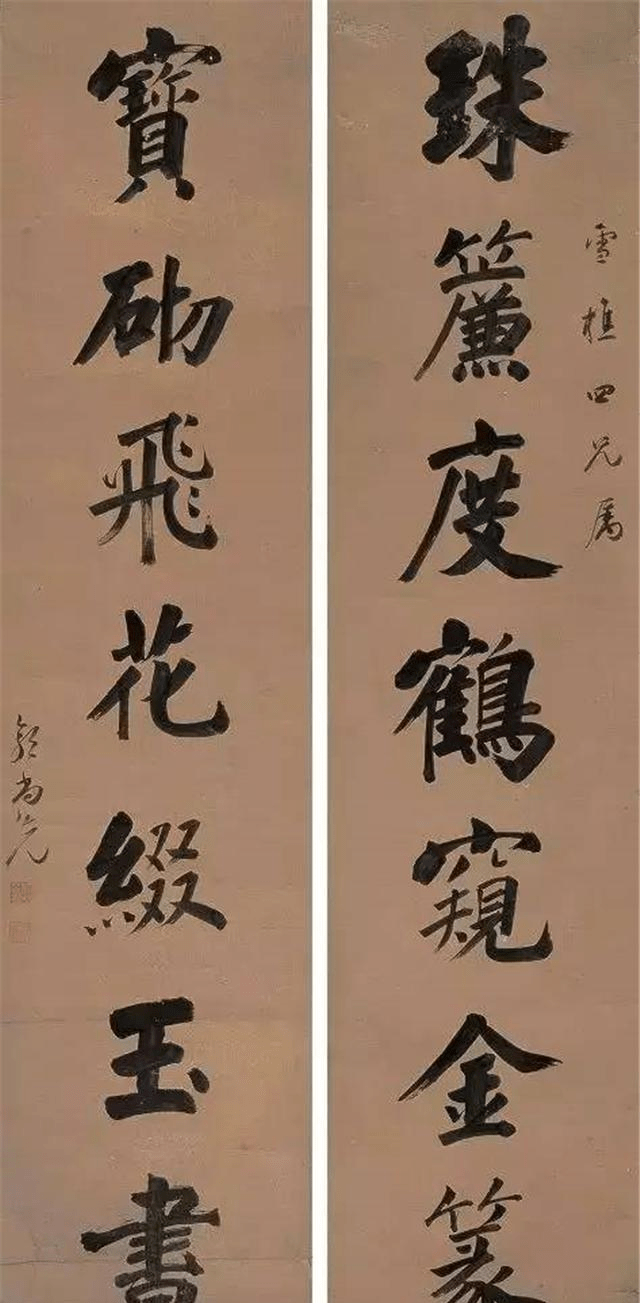 雪樵四兄属
珠簾度鶴窺金篆
寶砌飛花綴玉書
郭尚先